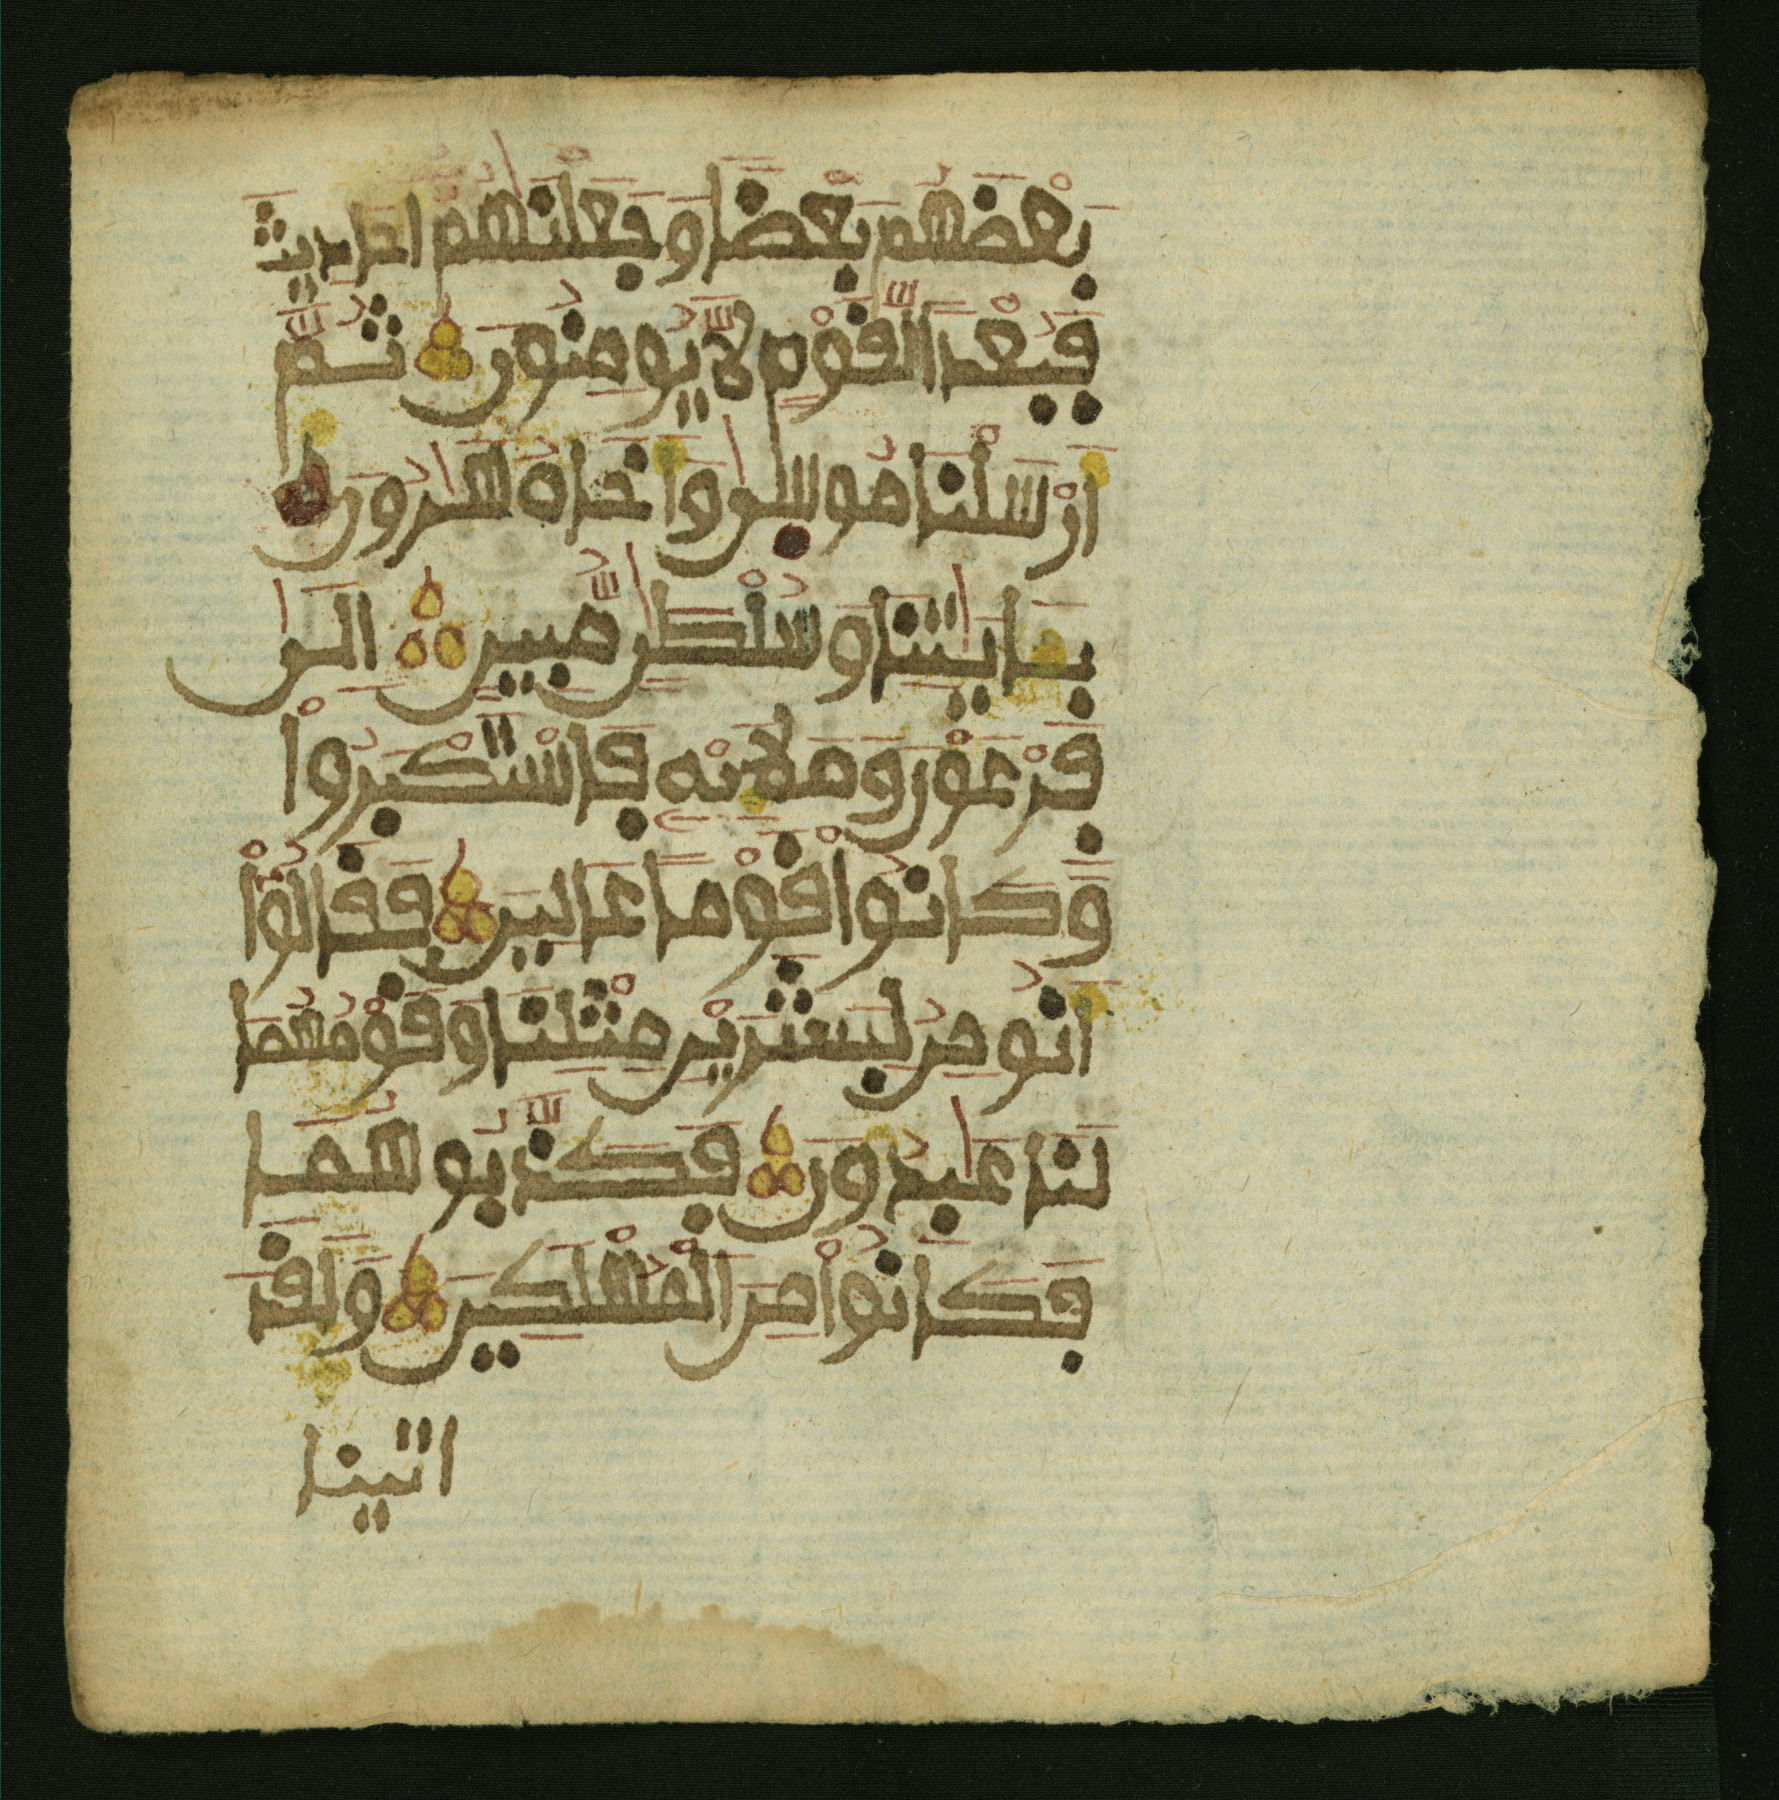 بَعْضَهُم بَعْضًا وَجَعَلْنَٰهُمْ أَحَادِيثَ
فَبُعْدًا لِّقَوْمٍ لَّا يُومِنُونَ ثُمَّ
أَرْسَلْنَا مُوسٜىٰ وَأَخَاهُ هَٰرُونَ
بِـَٔايَٰتِنَا وَسُلْطَٰنٍ مُّبِينٍ إِلَىٰ
فِرْعَوْنَ وَمَلَإِيْهِ فَاسْتَكْبَرُواْ
وَكَانُواْ قَوْمًا عَالِينَ فَقَالُوٓاْ
أَنُومِنُ لِبَشَرَيْنِ مِثْلِنَا وَقَوْمُهُمَا
لَنَا عَٰبِدُونَ فَكَذَّبُوهُمَا
فَكَانُواْ مِنَ الْمُهْلَكِينَ وَلَقَدَ
اتينا